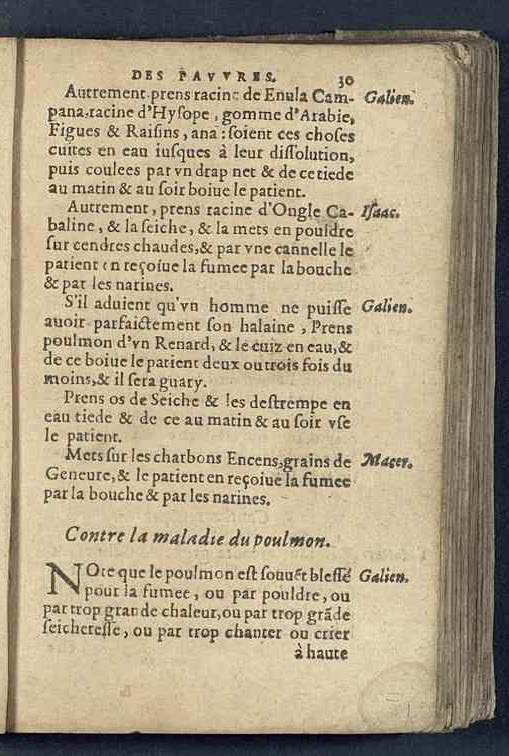 DES PAVVRES. 30
Autrement prens racine de Enula Cam- Galien.
pana, racine d'Hysope, gomme d'Arabie,
Figues & Raisins, ana : soient ces choses
cuites en eau iusques à leur dissolution,
puis coulees par vn drap net & de ce tiede
au matin & au soir boiue le patient.
Autrement, prens racine d'Ongle Ca- Isaac.
baline, & la seiche, & la mets en pouldre
sur cendres chaudes, & par vne cannelle le
patient en reçoiue la fumee par la bouche
& par les narines.
S'il aduient qu'vn homme ne puisse Galien.
auoir parfaictement son halaine, Prens
poulmon d'vn Renard, & le cuiz en eau, &
de ce boiue le patient deux ou trois fois du
moins, & il sera guary.
Prens os de Seiche & les destrempe en
eau tiede & de ce au matin & au soir vse
le patient.
Mets sur les charbons Encens, grains de Macer.
Geneure, & le patient en reçoiue la fumee
par la bouche & par les narines.
Contre la maladie du poulmon.
NOte que le poulmon est souuẽt blessé Galien.
pour la fumee, ou par pouldre, ou
par trop grande chaleur, ou par trop grãde
seicheresse, ou par trop chanter ou crier
à haute